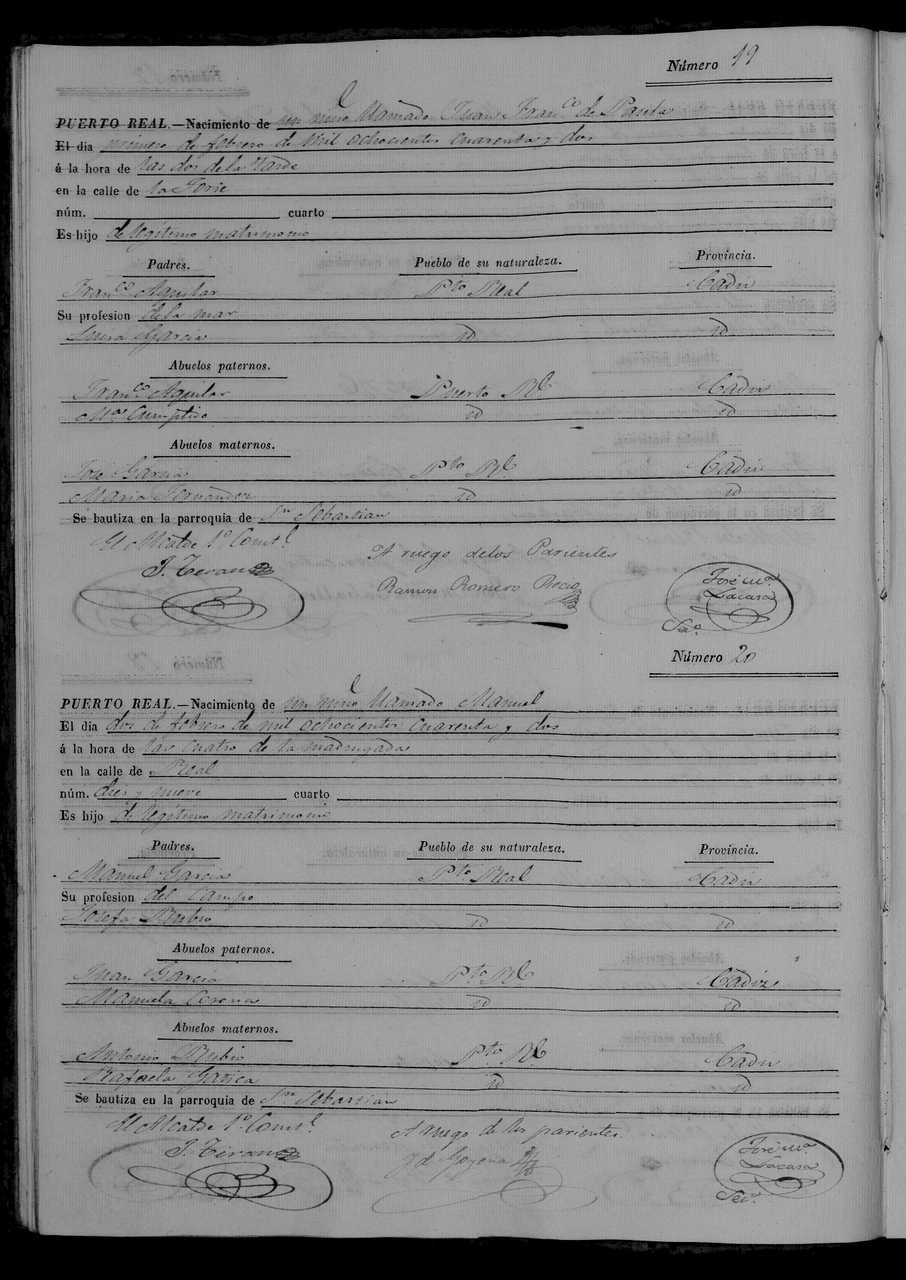 Número 19
PUERTO REAL.—Nacimiento de un niño llamado Juan Fran.co de Paula
El dia primero de febrero de mil ochocientos cuarenta y dos
á la hora de las dos de la tarde
en la calle de la Torre
núm. cuarto
Es hijo de legítimo matrimonio
Padres. Pueblo de su naturaleza. Provincia.
Fran.co Aguilar Pto Real Cadiz
Su profesion de la mar
Luisa Garcia id id
Abuelos paternos.
Fran.co Aguilar Puerto Rl Cadiz
id id
Abuelos maternos.
José Garcia Pto Rl Cadiz
Maria Fernandez id id
Se bautiza en la parroquia de Sn Sebastian
El Alcalde 1.o Const.l
J. Teran
A ruego de los Parientes
Ramon Romero
José M.a
Lacara
Número 20
PUERTO REAL.—Nacimiento de un niño llamado Manuel
El dia dos de febrero de mil ochocientos cuarenta y dos
á la hora de las cuatro de la madrugada
en la calle de Real
núm. dies y nueve cuarto
Es hijo de legítimo matrimonio
Padres. Pueblo de su naturaleza. Provincia.
Manuel Garcia Pto Real Cadiz
Su profesion del campo
Josefa Rubio id id
Abuelos paternos.
Juan Garcia Pto Rl Cadiz
Manuela Corona id id
Abuelos maternos.
Antonio Rubio Pto Rl Cadiz
Rafaela id id
Se bautiza en la parroquia de Sn Sebastian
El Alcalde 1.o Const.l
J. Teran
A ruego de los parientes
José M.a
Lacara